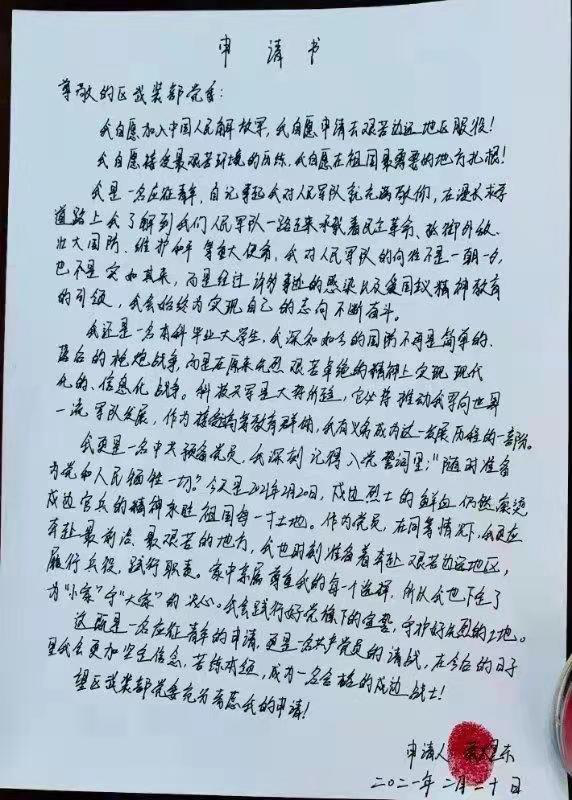 申请书
尊敬的区武装部党委:
我自愿加入中国人民解放军,我自愿申请去艰苦边远地区服役!
我自愿接受最艰苦环境的历练,我自愿在祖国最需要的地方扎根!
我是一名应征青年,自记事起我对人民军队就充满敬仰,在漫长求学
道路上我了解到我们人民军队一路走来承载着民主革命、抵御外敌、
壮大国防、维护和平等重大使命,我对人民军队的向往不是一朝一夕,
也不是突如其来,而是经过许多事迹的感染以及爱国主义精神教育
的引领,我会始终为实现自己的志向不断奋斗。
我还是一名本科毕业大学生,我深知如今的国防不再是简单的、
落后的枪炮战争,而是在原来先烈艰苦卓绝的精神上实现现代
化的、信息化战争。科技强军是大势所趋,它坐落推动我军向世界
一流军队发展,作为接受高等教育群体,我有义务成为这一发展历程的一部分。
我更是一名中共预备党员,我深刻记得入党誓词里:“随时准备
为党和人民牺牲一切。”今天是2021年2月20日,戍边烈士的鲜血仍然滚烫
戍边官兵的精神永驻祖国每一寸土地。作为党员,在同等情况下,我更应
奔赴最前沿、最艰苦的地方,我也时刻准备着奔赴艰苦边远地区,
履行兵役,践行职责。家中亲属尊重我的每一个选择,所以我也下定了
为“小家”守“大家”的决心。我会践行好党旗下的宣誓,守护好先烈的土地。
这既是一名应征青年的申请,更是一名共产党员的请战,在今后的日子
里我会更加坚定信念,苦练本领,成为一名合格的戍边战士!
望区武装部党委充分考虑我的申请!
申请人
二〇二一年二月二十日